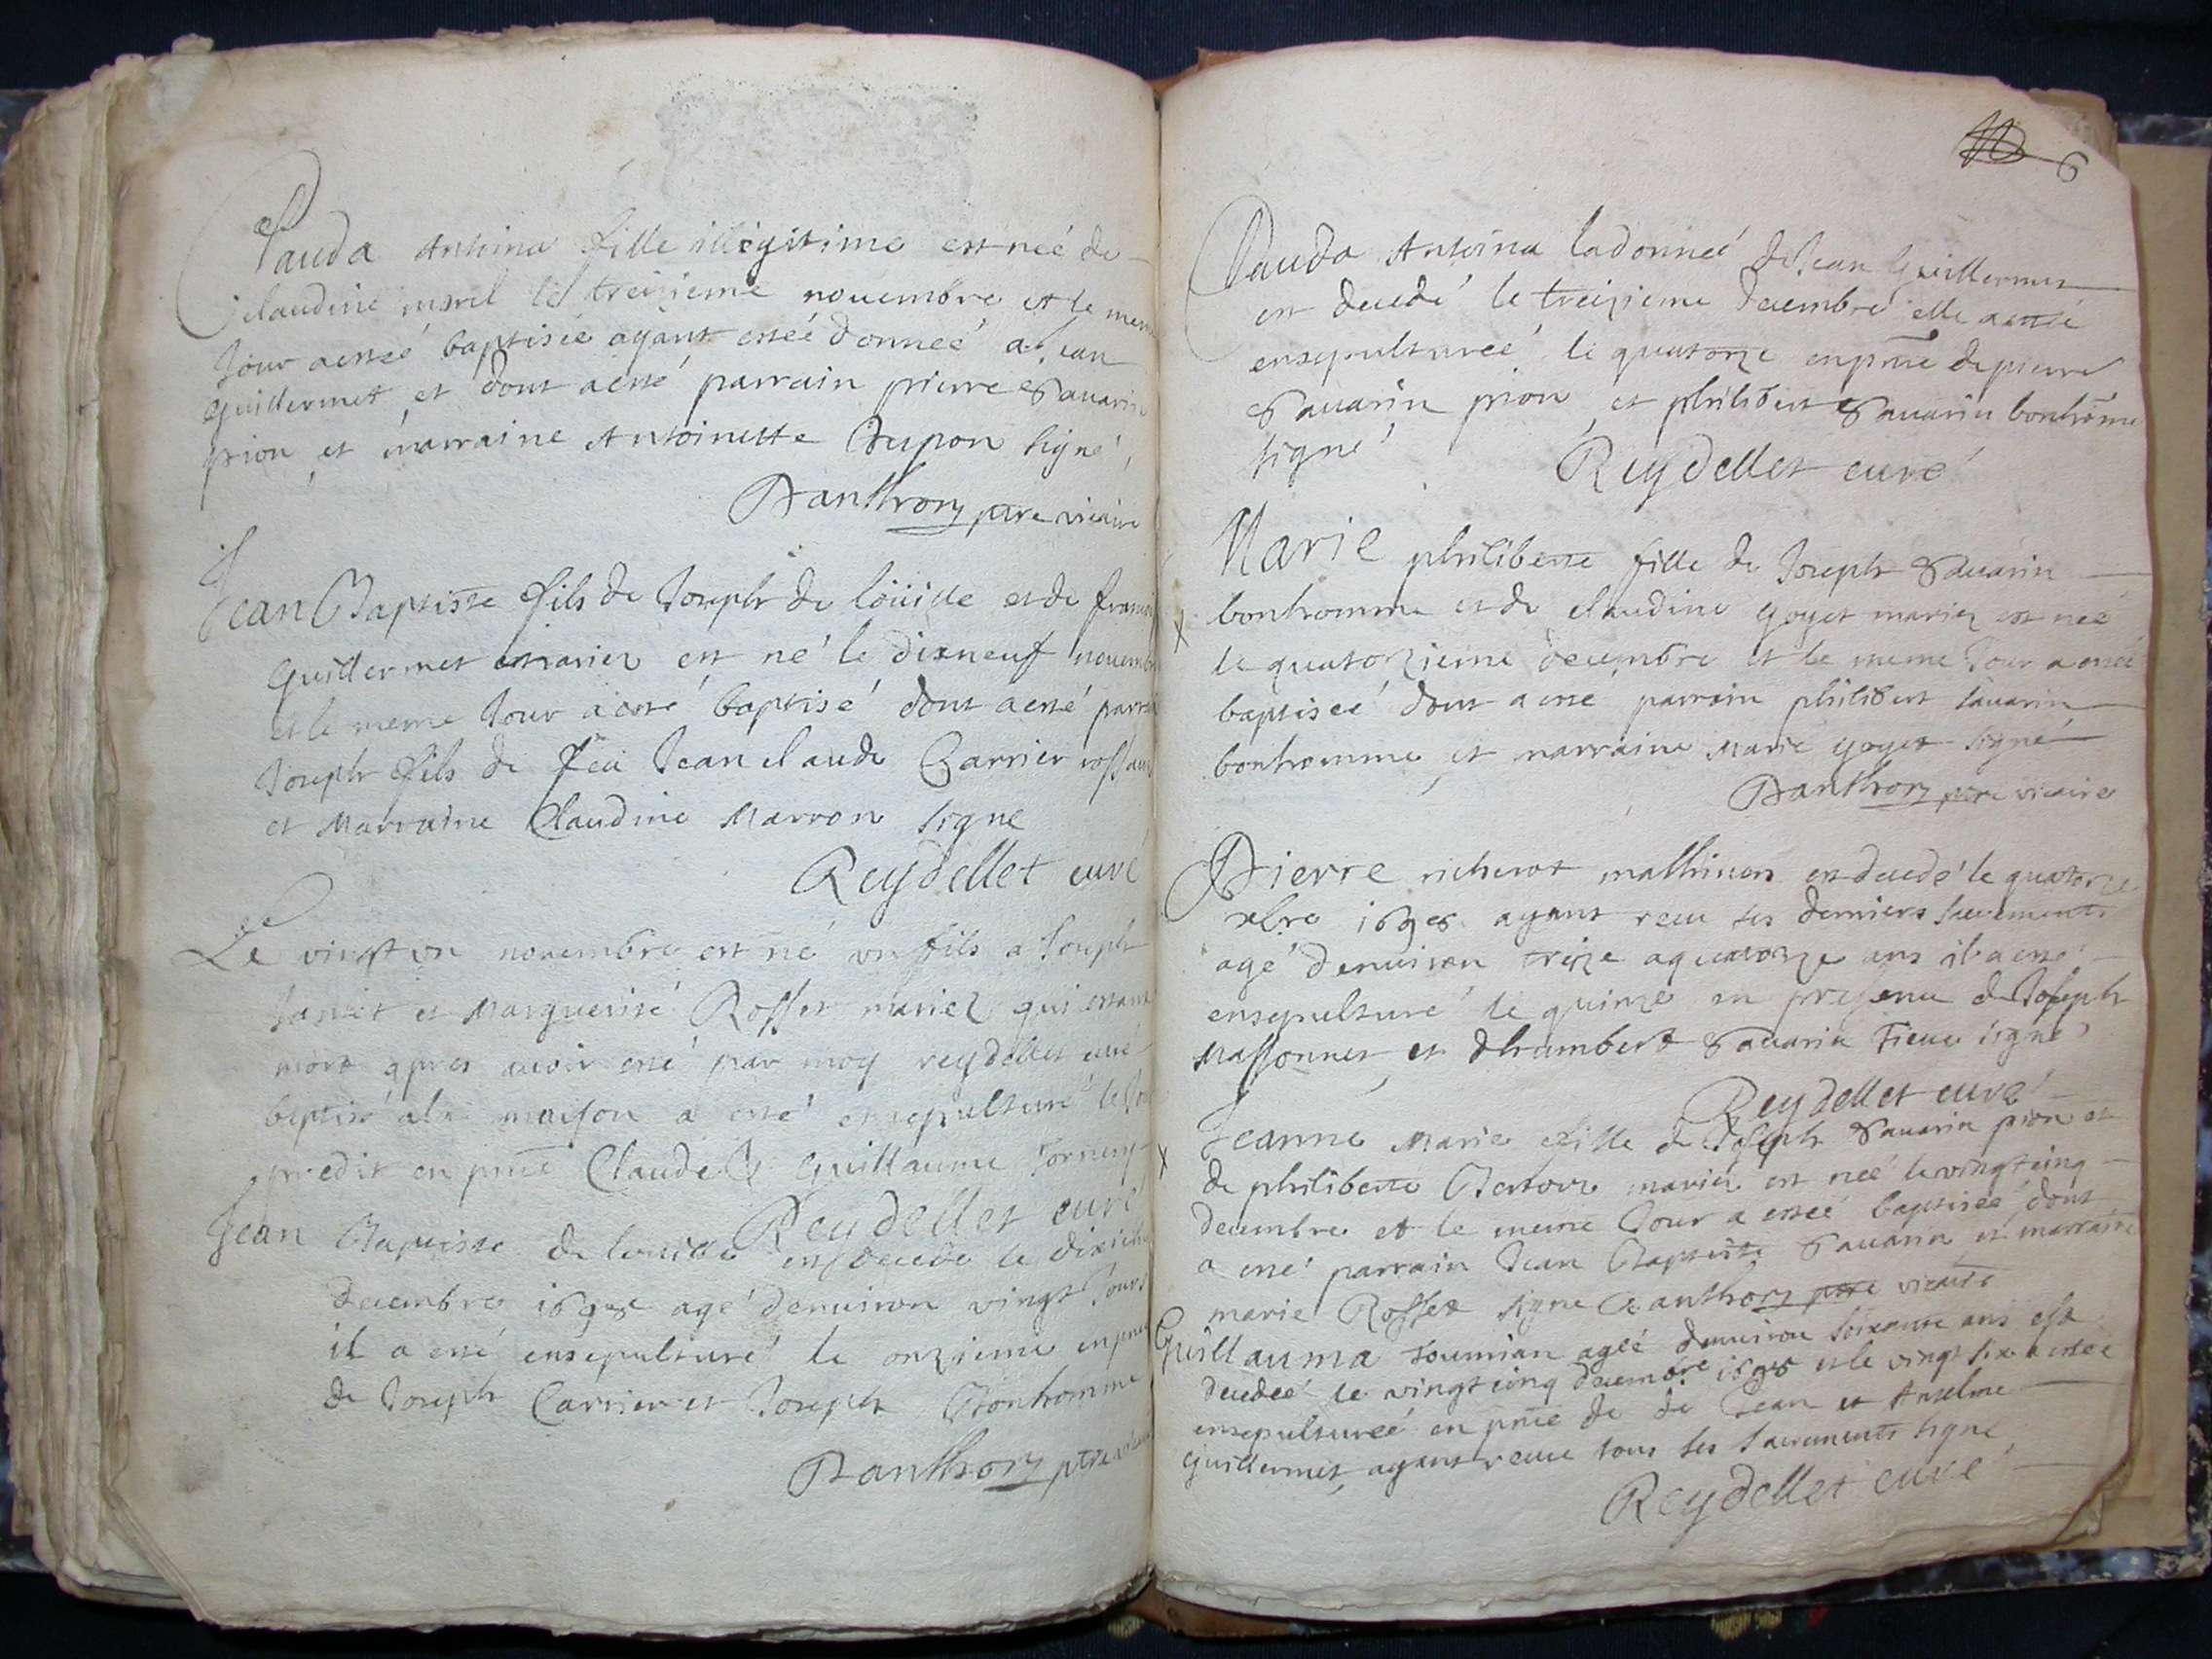 Clauda Antoina fille illegitime est née de
claudine morel le treizieme novembre et le mem
Jour a esteé baptisée ayant esteé donneé a Jean
guillermet et dont a esté parrain pierre Savarin
pion et marraine Antoinette Dupon signé
Danthon ptre vicaire
Jean Baptiste fils de Joseph de loüille et de fran
guillermet mariez est né le dixneuf novemb
et le meme Jour a esté baptisé dont a esté parra
Joseph fils de feu Jean claude Carrier
et Marraine Claudine Marron signe
Reydellet curé
Le vingt un novembre est né un fils a Joseph
et Marguerite Rosset mariez qui estant
mort apres avoir esté par moy reydellet curé
baptisé a la maison a esté ensepulturé le Jo
predit en pnce Claude & guillaume
Reydellet curé
Jean Baptiste de louille est decedé le dixie
decembre 1698 agé denuiron vingt Jours
il a esté ensepulturé le onzieme en pnce
de Joseph Carrier et Joseph Bonhomme
Danthon ptre
6
Clauda Antoina ladonneé de Jean Guillermet
est decedé le treizieme decembre elle a esté
ensepultureé le quatorze en pnce de pierre
Savarin pion et philibert Savarin bonhõme
signé
Reydellet curé
Marie philiberte fille de Joseph Savarin
x bonhomme et de claudine goyet mariez est neé
le quatorzieme decembre et le meme Jour a esteé
baptiseé dont a esté parrain philibert savarin
bonhomme et marraine Marie goyet signé
Danthon ptre vicaire
Pierre richerot mathieu est decedé le quatorze
xbre 1698 ayant receu ses derniers sacrements
agé denuiron treize a quatorze ans il a esté
ensepulturé le quinze en presence de Joseph
Massonnet et dhumbert Savarin signé
Reydellet curé
Jeanne Marie fille de Joseph Savarin pion et
x de philiberte mariez est neé le vingt cinq
decembre et le meme Jour a esteé baptiseé dont
a esté parrain Jean Baptiste Savarin et marraine
marie Rosset signe Danthon ptre vicaire
Guillauma agée denuiron soixante ans est
decedeé le vingt cinq decembre 1698 et le vingt six a esteé
ensepultureé en pnce de de Jean et Anselme
guillermet ayant receue tous ses sacrements signe
Reydellet curé